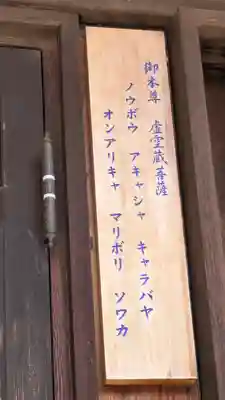 御本尊 虚空蔵菩薩
ノウボウ アキャシャ キャラバヤ
オンアリキャ マリボリ ソワカ